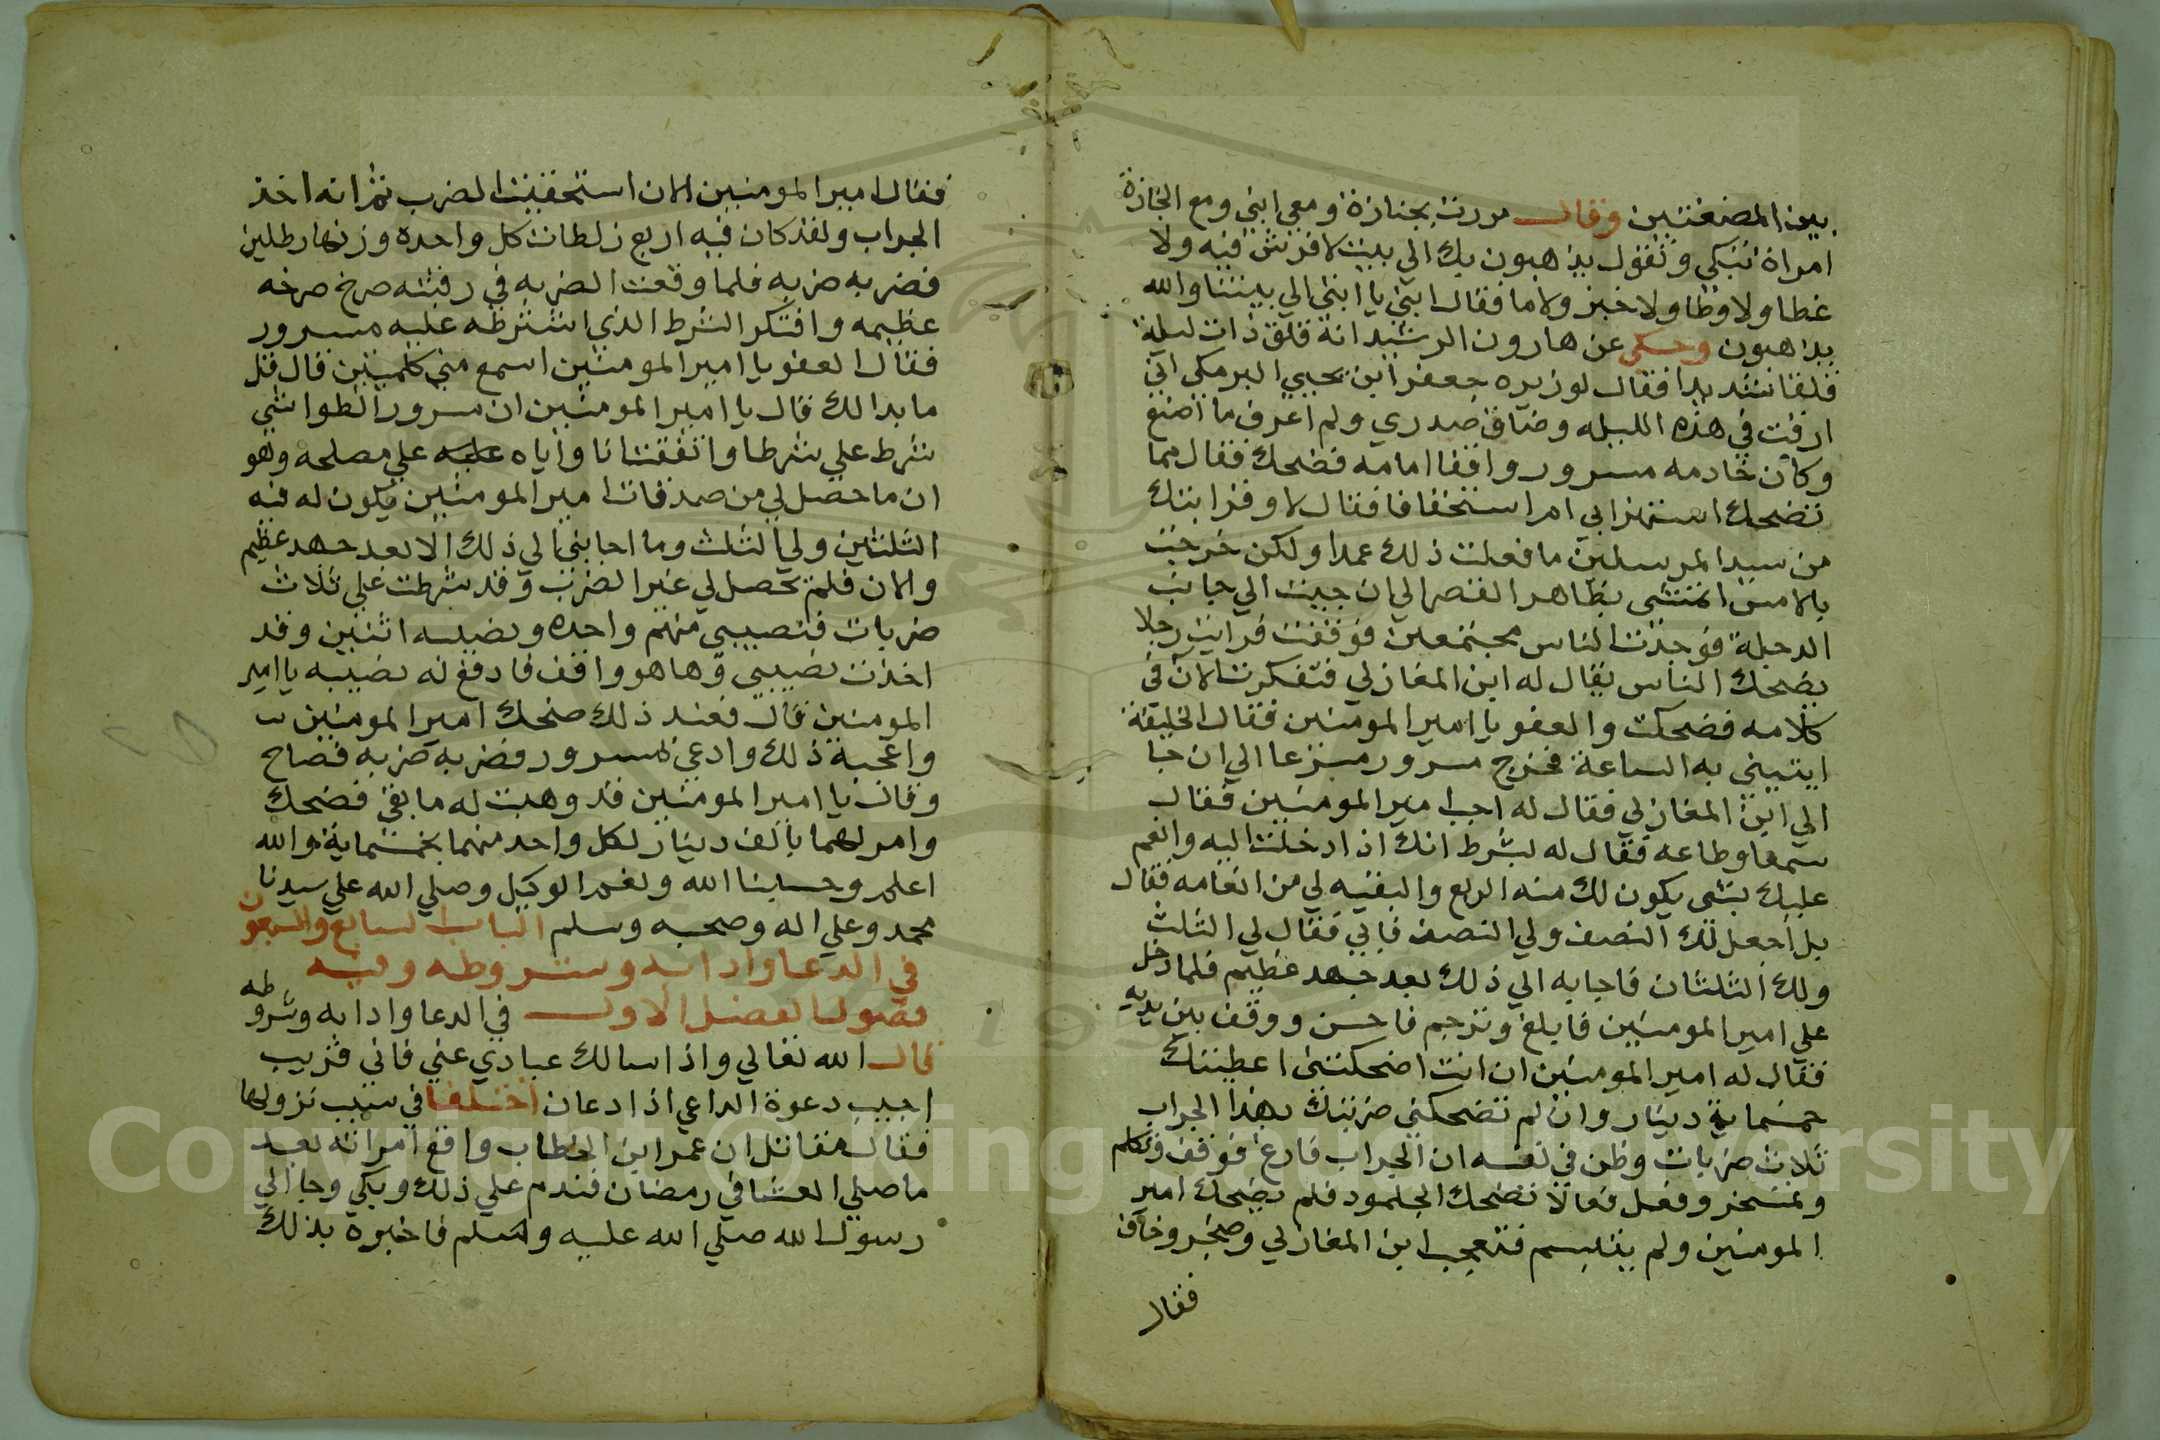 بين المصنفتين وقال مررت بجنازة ومعي ابني ومع الجنازة
امراة تبكي وتقول يذهبون بك الي بيت لا فرش فيه ولا
غطا ولا وطا ولا خبز ولا ما فقال ابني يا ابتي الي بيتنا والله
يذاهبون وحكي عن هارون الرشيد انه قلق ذات ليلة
قلقا شديدا فقال لوزيره جعفر ابن يحيي البرمكي اني
ارقت في هذه الليله وضاق صدري ولم اعرف ما اصنع
وكان خادمه مسرور واقفا امامه فضحك فقال مما
تضحك استهزا بي ام استخفافا فقال لا وقرابتك
من سيد المرسلين ما فعلت ذلك عمدا ولكن خرجت
بالامس اتمشي بظاهر القصر الي ان جيت الي جانب
الدجلة فوجدت الناس مجتمعين فوقفت فرايت رجلا
يضحك الناس يقال له ابن المغازلي فتفكرت الان في
كلامه فضحكت والعفو يا امير المومنين فقال الخليفة
ايتيني به الساعة فخرج مسرور مسرعا الي ان جا
الي ابن المغازلي فقال له اجب امير المومنين فقال
سمعا وطاعه فقال له بشرط انك اذا دخلت اليه وانعم
عليك بشي يكون لك منه الربع والبقيه لي من انعامه فقال
بل اجعل لك النصف ولي النصف فابي فقال لي الثلث
ولك الثلثان فاجابه الي ذلك بعد جهد عظيم فلما دخل
علي امير المومنين فابلغ وترجم فاحسن ووقف بين يديه
فقال له امير المومنين ان انت اضحكتني اعطيتك
خمسماية دينار وان لم تضحكني ضربتك بهذا الجراب
ثلاث ضربات وظن في نفسه ان الجراب فارغ فوقف وتكلم
وتمسخر وفعل فعالا تضحك الجلمود فلم يضحك امير
المومنين ولم يتبسم فتعجب ابن المغازلي وضجر وخاف
فقال
فقال امير المومنين الان استحقيت الضرب ثم انه اخذ
الجراب ولقد كان فيه اربع زلطات كل واحده وزنها رطلين
فضربه ضربه فلما وقعت الضربه في رقبته صرخ صرخه
عظيمه وافتكر الشرط الذي اشترطه عليه مسرور
فقال العفو يا امير المومنين اسمع مني كلمتين قال قل
ما بدا لك قال يا امير المومنين ان مسرور الطواشي
شرط علي شرطا واتفقت انا واياه عليه علي مصلحه وهو
ان ما حصل لي من صدقات امير المومنين يكون له فيه
الثلثين ولي الثلث وما اجابني الي ذلك الا بعد جهد عظيم
والان فلم تحصل لي غير الضرب وقد شرطت علي ثلاث
ضربات فنصيبي منهم واحده ونصيبه اثنين وقد
اخذت نصيبي وها هو واقف فادفع له نصيبه يا امير
المومنين قال فعند ذلك ضحك امير المومنين
واعجبه ذلك وادعي لمسرور فضربه ضربه فصاح
وقال يا امير المومنين قد وهبت له ما بقي فضحك
وامر لهما بالف دينار لكل واحد منهما بخمسماية والله
اعلم وحسبنا الله ونعم الوكيل وصلي الله علي سيدنا
محمد وعلي اله وصحبه وسلم الباب السابع والسبعون
في الدعا وادابه وشروطه وفيه
فصول الفصل الاول في الدعا وادابه وشروطه
قال الله تعالي واذا سالك عبادي عني فاني قريب
اجيب دعوة الداعي اذا دعان اختلفا في سبب نزولها
فقال مقاتل ان عمر ابن الخطاب واقع امراته بعد
ما صلي العشا في رمضان فندم علي ذلك وبكي وجا الي
رسول الله صلي الله عليه وسلم فاخبره بذلك
Copyright © King Saud University